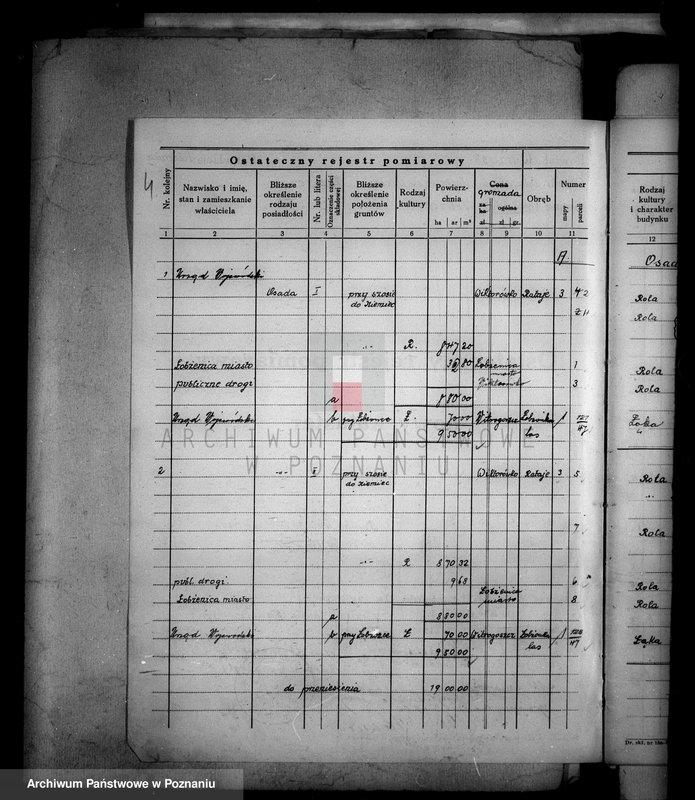 4
Ostateczny rejestr pomiarowy
Nr. kolejny
Nazwisko i imię, stan i zamieszkanie właściciela
Bliższe określenie rodzaju posiadłości
Nr. lub litera
Oznaczenie części składowej
Bliższe określenie położenia gruntów
Rodzaj kultury
Powierzchnia
ha ar m²
Cena
gromada
za ha
ogólna
zł. zł gr.
Obręb
Numer
mapy
parceli
Rodzaj kultury i charakter budynku
1 2 3 4 5 6 7 8 9 10 11 12
A Osad
1 Urząd Wojewódzki
Osada I przy szosie Wiktorówko Rataje 3 42 Rola
do Niemiec Rola
-"- R. 8 47 20
Łobżenica miasto 32 80 Łobżenica 1 Rola
miasto
publiczne drogi Wiktorówko 3 Rola
a 8 80 00
Urząd Wojewódzki b przy Łobżence Ł. 70 00 Witrogoszcz Łobżonka 1 Łąka
9 50 00 las 47 "
ARCHIWUM PAŃSTWOWE
W POZNANIU
2 -"- I przy szosie Wiktorówko Rataje 3 5 Rola
do Niemiec "
7 Rola
-"- R 8 70 32
publ. drogi 9 68 6 Rola
Łobżenica
Łobżenica miasto miasto 8 Rola
a 8 80 00
Urząd Wojewódzki b przy Łobżonce Ł 70 00 Witrogoszcz Łobżonka 1 Łąka
9 50 00 las 47
do przeniesienia 19 00 00
Dr. skł. nr
Archiwum Państwowe w Poznaniu